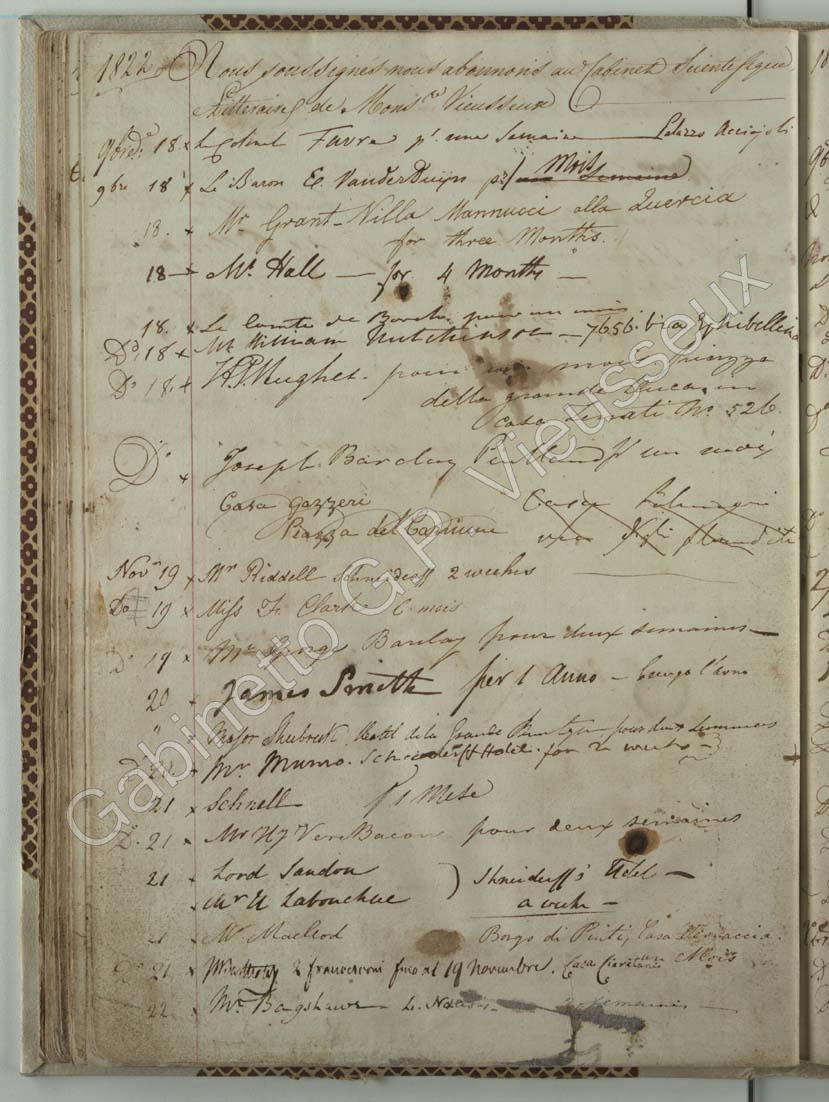 1822 Nous soussignés nous abonnons au Cabinet Scientifique
Litteraire de Mons. Vieusseux
9bre 18 x Le Colonel Favre pr. une Semaine Palazzo Acciajoli
9bre 18 x Le Baron E. VanderDuijn pr 1 Mois Semaine
18. x Mr Grant - Villa Mannucci alla Quercia
for three Months.
18 Mr. Hall — for 4 Months —
18. x Le Comte de pour un mois
Do. 18 x Mr William Hutchinson — 7656. Via Ghibellina
Do 18. x H. P. Hughes. pour un mois piazza
della grande Duca, in
casa No. 526.
Do x Joseph Barclay Pentland pr un mois
Casa Gazzeri Casa
Piazza del Carmine via degli
Novr 19 x Mr Riddell Schneiderff 2 weeks
Do 19 x Miss Clarke 6 mois
Do 19 x Mr. George Barclay pour deux semaines —
20 x James Smith per 1 Anno — Lungo l'arno
" x Major Shubrick Hotel de la Grande Bretagne pour deux semaines
Do 21 x Mr Munro. Schneiderff Hotel. for 2 weeks —
21 x Schnell pr 1 Mese
Do. 21 x Mr H J Vere Bacon pour deux semaines
21 x Lord Sandon ) Shneiderff's Hotel —
x Mr H Labouchere a week —
x Mr. Macleod Borgo di Pinti, Casa
Do 21 x 2 francesconi fino al 19 Novembre. Casa un Mois
22 x Mr. Bagshawe semaines —
Gabinetto G.P. Vieusseux